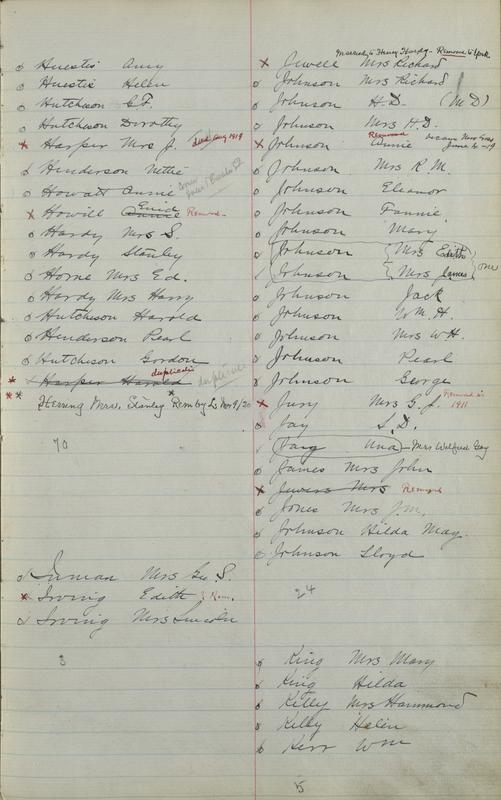 o Huestis Amy
o Huestis Helen
o Hutcheson G.F.
o Hutcheson Dorothy
x Harper Mrs J. died Aug 1919
o Henderson Nettie
o Howatt Annie
x Howill Annie Enid Remvd.
o Hardy Mrs S.
o Hardy Stanley
o Horne Mrs Ed.
o Hardy Mrs Harry
o Hutcheson Harold
o Henderson Pearl
o Hutcheson Gordon
* Harper Harold duplicate duplicate
** Herring Mrs. Stanley Rem by L. Nov 9/20
70
Inman Mrs Geo. S.
x Irving Edith ? Rem.
Irving Mrs Lincoln
3
married to Henry Hardy - Remove to York
x Jewell Mrs Richard
o Johnson Mrs Richard
o Johnson H.D. (M D)
o Johnson Mrs H.D.
x Johnson Annie Removed
o Johnson Mrs R. M.
o Johnson Eleanor
o Johnson Fannie.
o Johnson Mary
o Johnson Mrs Edith
Johnson Mrs James } one
o Johnson Jack
o Johnson W. H.
o Johnson Mrs W H.
o Johnson Pearl
o Johnson George
x Jury Mrs G. J. Removed in 1911
Jay S. D.
Una Mrs Wilfred Gay
o James Mrs John
x Jewers Mrs Remvd
o Jones Mrs J.M.
o Johnson Hilda May.
o Johnson Lloyd
24
King Mrs Mary
King Hilda
Kelly Mrs Hammond
Kelly Helen
Kerr Wm
5